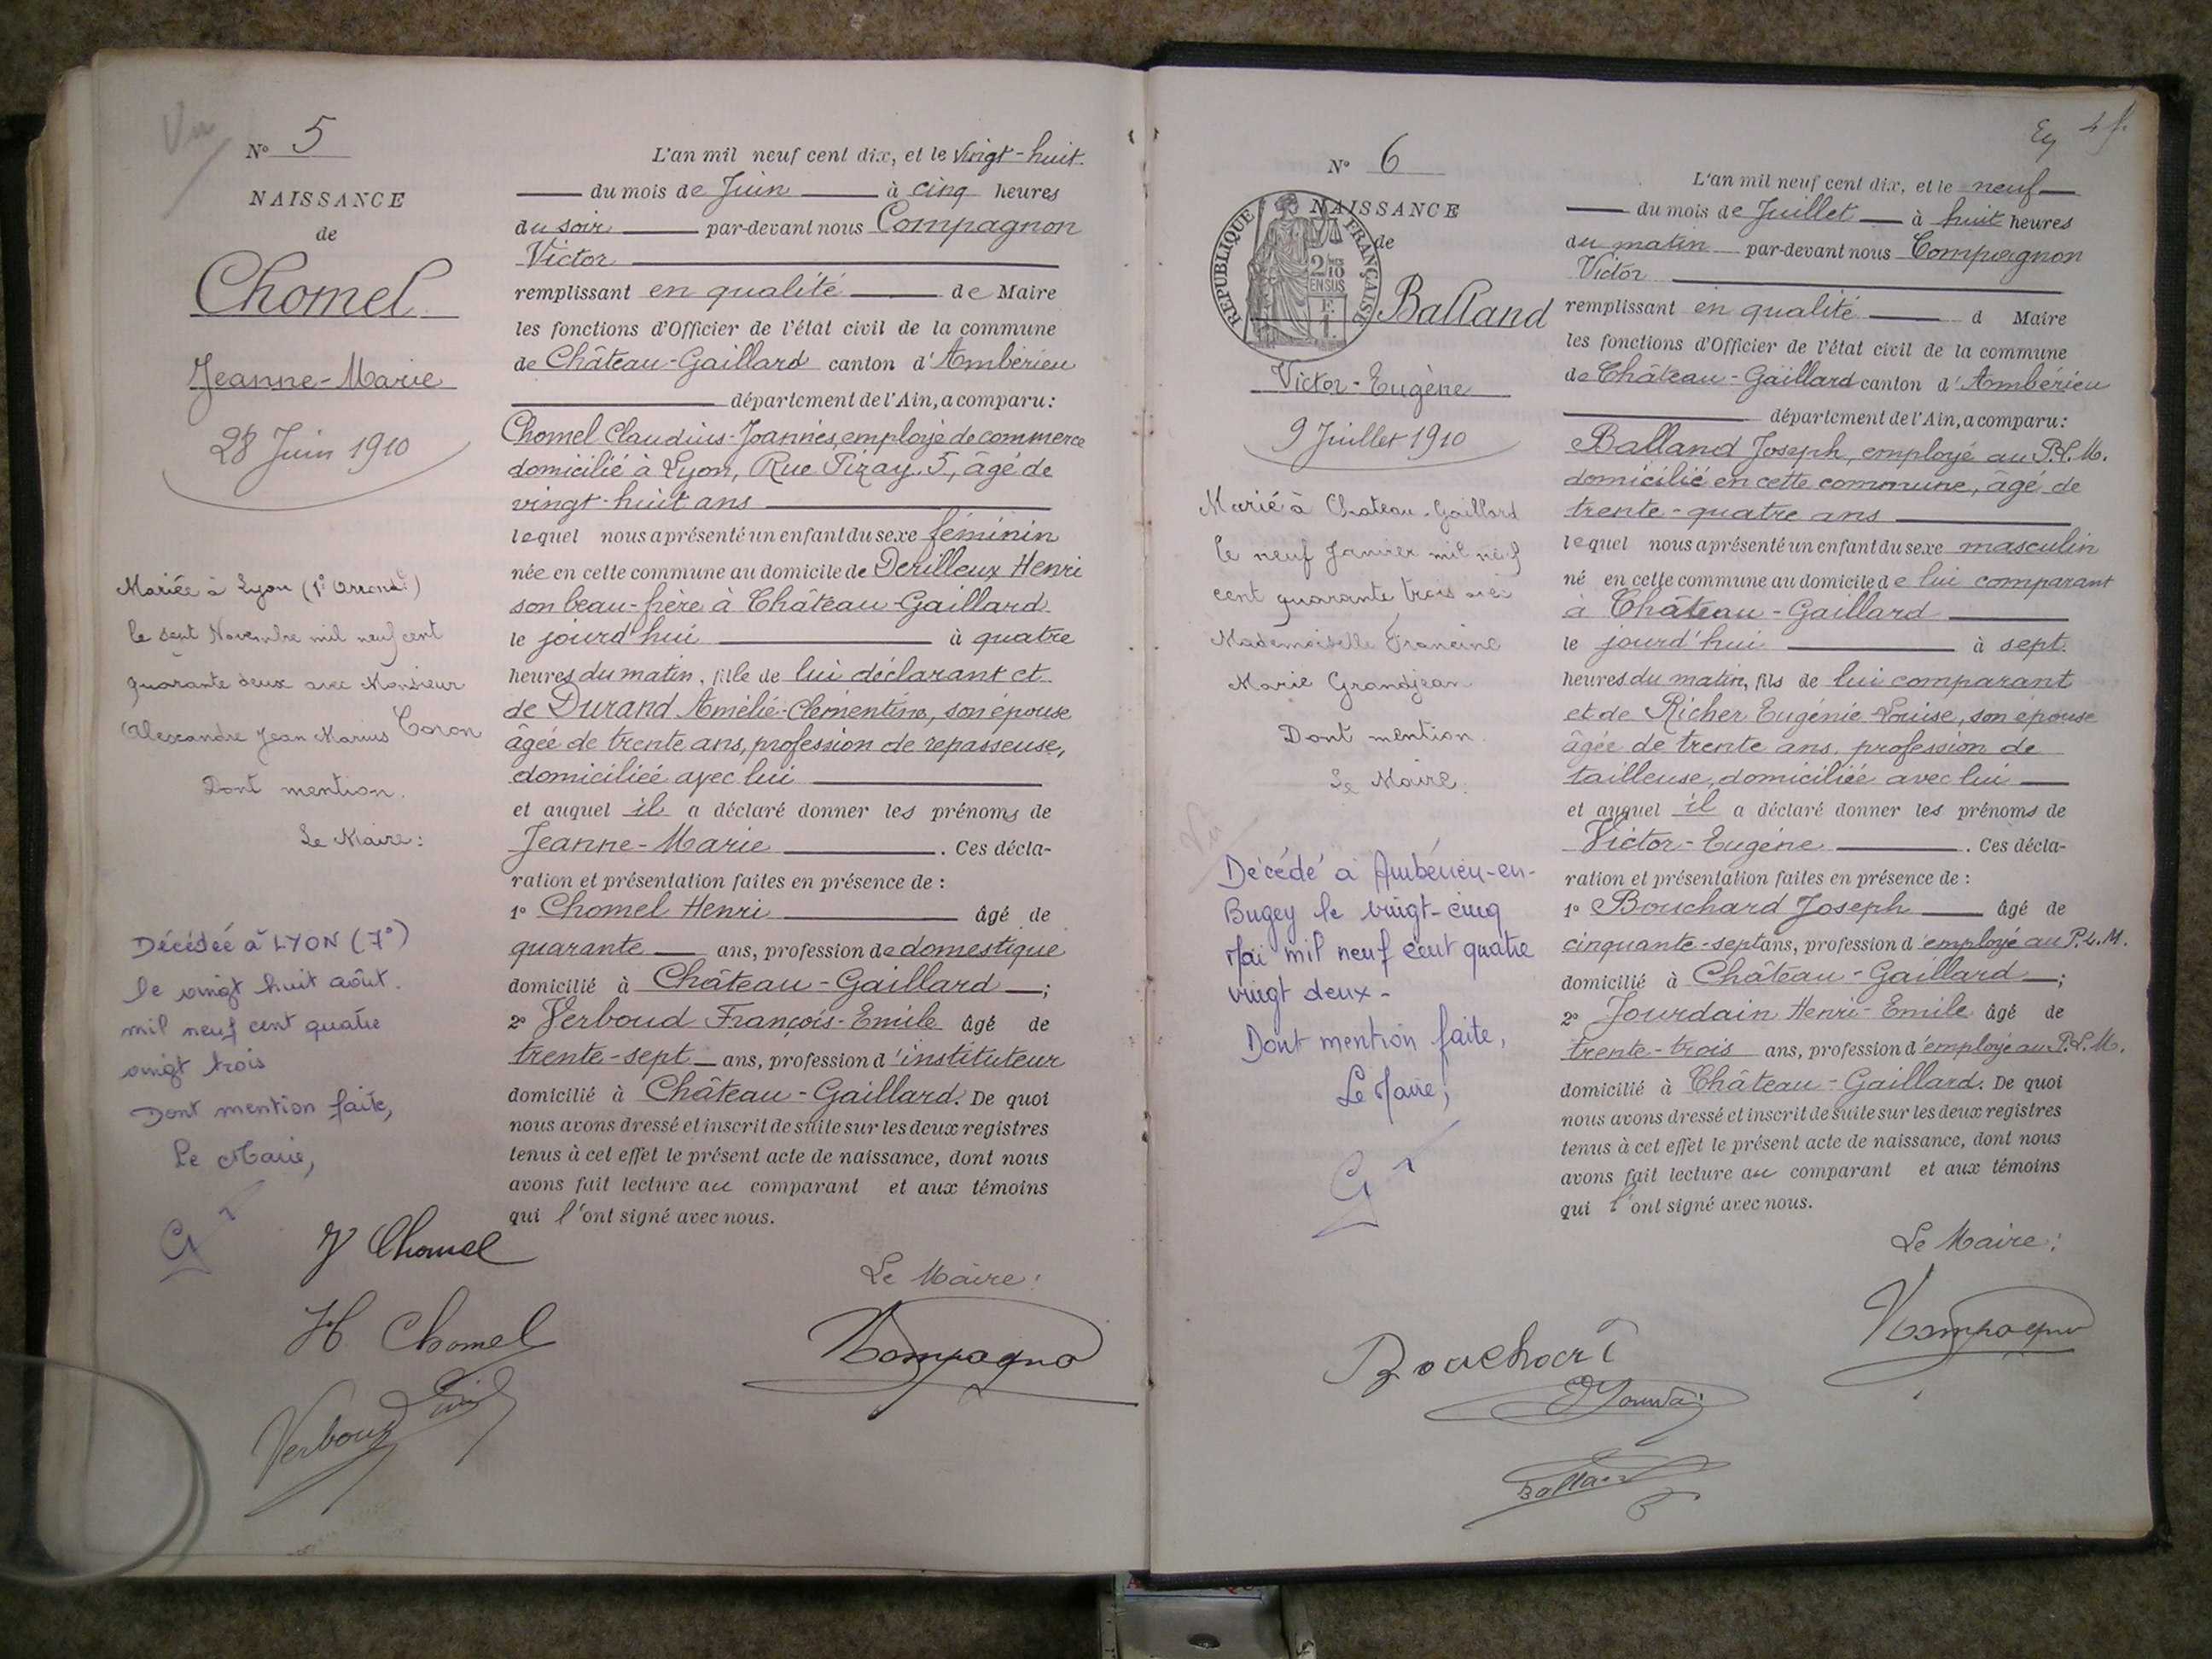 Vu
N° 5
NAISSANCE
de
Chomel
Jeanne-Marie
28 Juin 1910
Mariée à Lyon (1er Arrondt)
le sept Novembre mil neuf cent
quarante deux avec Monsieur
Alexandre Jean Marius Coron
Dont mention.
Le Maire:
Décédée à LYON (7°)
le vingt huit août.
mil neuf cent quatre
vingt trois
Dont mention faite,
Le Maire,
L'an mil neuf cent dix, et le vingt-huit
du mois de Juin à cinq heures
du soir par-devant nous Compagnon
Victor
remplissant en qualité de Maire
les fonctions d'Officier de l'état civil de la commune
de Château-Gaillard canton d'Ambérieu
département de l'Ain, a comparu:
Chomel Claudius-Joannès, employé de commerce
domicilié à Lyon, Rue Pizay, 5, âgé de
vingt-huit ans
lequel nous a présenté un enfant du sexe féminin
née en cette commune au domicile de Henri
son beau-frère à Château-Gaillard
le jourd'hui à quatre
heures du matin, fille de lui déclarant et
de Durand Amélie-Clémentine, son épouse
âgée de trente ans, profession de repasseuse,
domiciliée avec lui
et auquel il a déclaré donner les prénoms de
Jeanne-Marie . Ces décla-
ration et présentation faites en présence de :
1° Chomel Henri âgé de
quarante ans, profession de domestique
domicilié à Château-Gaillard ;
2° Verboud François-Emile âgé de
trente-sept ans, profession d'instituteur
domicilié à Château-Gaillard. De quoi
nous avons dressé et inscrit de suite sur les deux registres
tenus à cet effet le présent acte de naissance, dont nous
avons fait lecture au comparant et aux témoins
qui l'ont signé avec nous.
J Chomel
Le Maire:
H Chomel
Compagnon
Verboud Emile
N° 6
NAISSANCE
de
RÉPUBLIQUE FRANÇAISE
2/10
EN SUS
Balland
Victor-Eugène
9 Juillet 1910
Marié à Chateau-Gaillard
le neuf Janvier mil neuf
cent quarante trois avec
Mademoiselle Francine
Marie Grandjean
Dont mention.
Le Maire:
Vu
Décédé à Ambérieu-en-
Bugey le vingt-cinq
Mai mil neuf cent quatre
vingt deux-
Dont mention faite,
Le Maire,
L'an mil neuf cent dix, et le neuf
du mois de Juillet à huit heures
du matin par-devant nous Compagnon
Victor
remplissant en qualité d Maire
les fonctions d'Officier de l'état civil de la commune
de Château-Gaillard canton d'Ambérieu
département de l'Ain, a comparu:
Balland Joseph, employé au P.L.M.
domicilié en cette commune, âgé de
trente-quatre ans
lequel nous a présenté un enfant du sexe masculin
né en cette commune au domicile de lui comparant
à Château-Gaillard
le jourd'hui à sept
heures du matin, fils de lui comparant
et de Richer Eugénie Louise, son épouse
âgée de trente ans, profession de
tailleuse, domiciliée avec lui
et auquel il a déclaré donner les prénoms de
Victor-Eugène . Ces décla-
ration et présentation faites en présence de :
1° Bouchard Joseph âgé de
cinquante-sept ans, profession d'employé au P.L.M.
domicilié à Château-Gaillard ;
2° Jourdain Henri-Emile âgé de
trente-trois ans, profession d'employé au P.L.M.
domicilié à Château-Gaillard. De quoi
nous avons dressé et inscrit de suite sur les deux registres
tenus à cet effet le présent acte de naissance, dont nous
avons fait lecture au comparant et aux témoins
qui l'ont signé avec nous.
Le Maire:
Compagnon
Bouchard
Jourdain
Balland